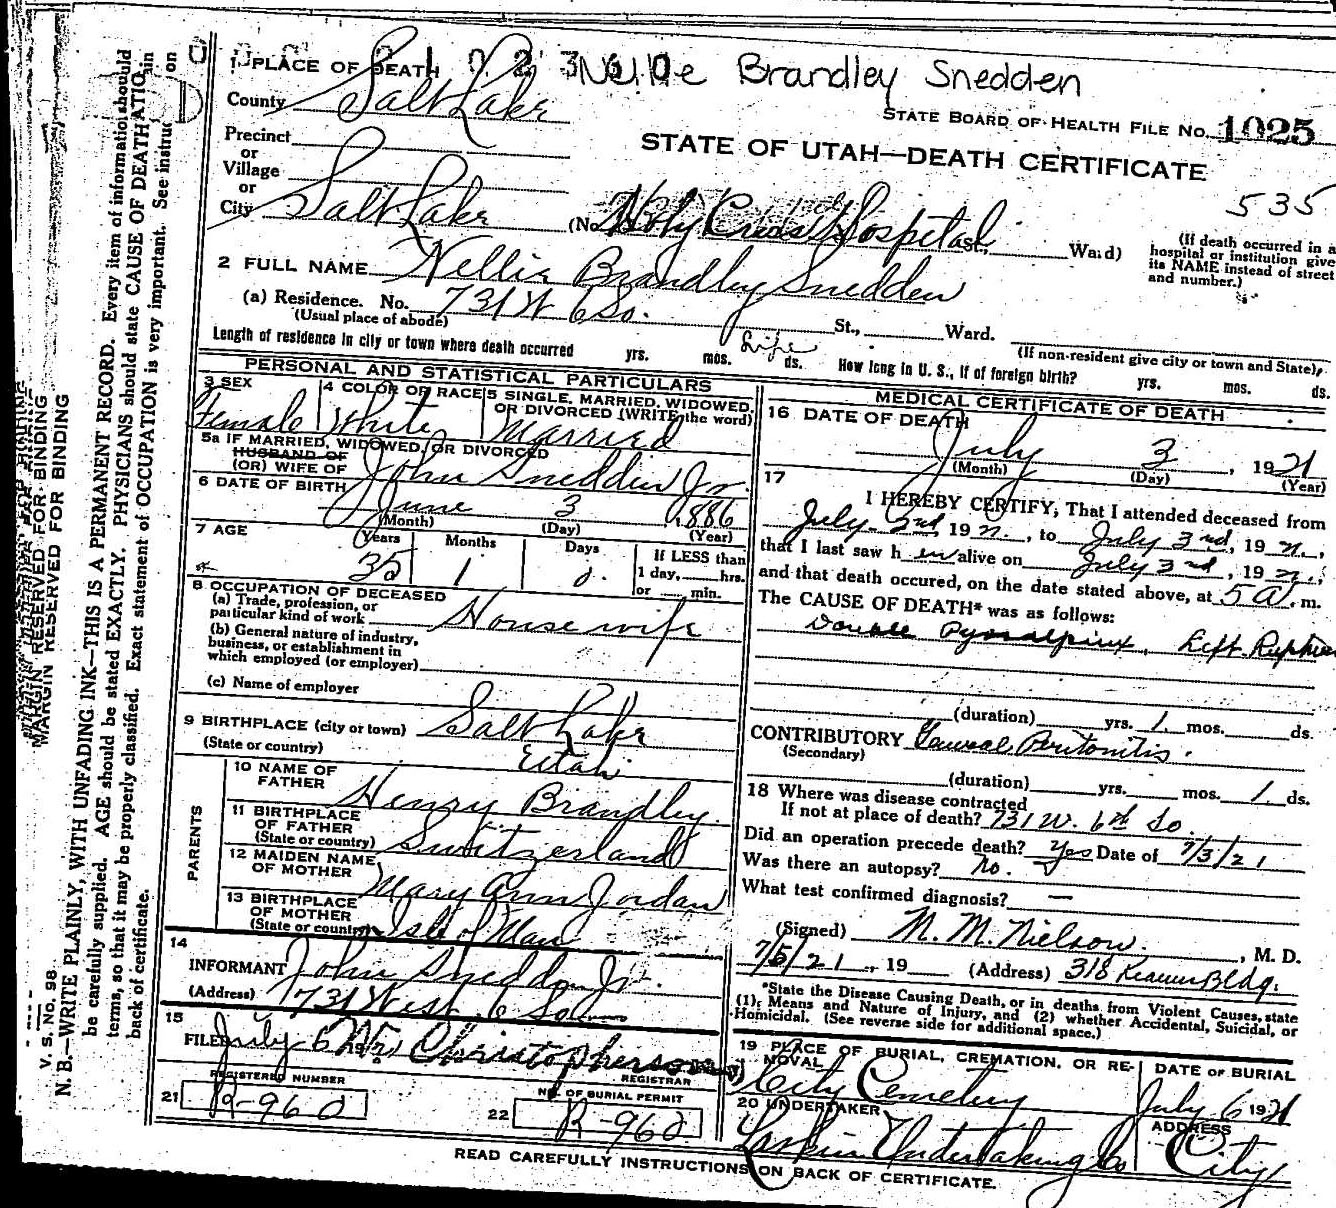 Nellie Brandley Snedden
1 PLACE OF DEATH
County Salt Lake
STATE BOARD OF HEALTH FILE NO. 1025
STATE OF UTAH—DEATH CERTIFICATE
535
Precinct
or
Village
or
City Salt Lake (No. Holy Cross Hospital St., Ward)
(If death occurred in a
hospital or institution give
its NAME instead of street
and number.)
2 FULL NAME Nellie Brandley Snedden
(a) Residence. No. 731 W 6 So. St., Ward.
(Usual place of abode)
(If non-resident give city or town and State)
Length of residence in city or town where death occurred yrs. mos. Life ds. How long in U. S., if of foreign birth? yrs. mos. ds.
PERSONAL AND STATISTICAL PARTICULARS
3 SEX
Female
4 COLOR OR RACE
White
5 SINGLE, MARRIED, WIDOWED,
OR DIVORCED (WRITE the word)
Married
5a IF MARRIED, WIDOWED, OR DIVORCED
HUSBAND OF
(OR) WIFE OF John Snedden Jr.
6 DATE OF BIRTH June 3 1886
(Month) (Day) (Year)
7 AGE
Years Months Days If LESS than
35 1 0 1 day, hrs.
or min.
8 OCCUPATION OF DECEASED
(a) Trade, profession, or
particular kind of work Housewife
(b) General nature of industry,
business, or establishment in
which employed (or employer)
(c) Name of employer
9 BIRTHPLACE (city or town) Salt Lake
(State or country) Utah
PARENTS
10 NAME OF
FATHER Henry Brandley.
11 BIRTHPLACE
OF FATHER
(State or country) Switzerland
12 MAIDEN NAME
OF MOTHER Mary Ann Jordan
13 BIRTHPLACE
OF MOTHER
(State or country) Isle of Man
14
INFORMANT John Snedden Jr.
(Address) 731 West 6 So
15
FILED July 6 192 Christopherson
REGISTRAR
REGISTERED NUMBER
21 R-960
NO. OF BURIAL PERMIT
22 R-960
MEDICAL CERTIFICATE OF DEATH
16 DATE OF DEATH
July 3, 1921
(Month) (Day) (Year)
17
I HEREBY CERTIFY, That I attended deceased from
July 2nd, 1921, to July 3rd, 1921,
that I last saw h er alive on July 3rd, 1921,
and that death occured, on the date stated above, at 5 a. m.
The CAUSE OF DEATH* was as follows:
Double Pyosalpinx, Left
(duration) yrs. 1 mos. ds.
CONTRIBUTORY General Peritonitis.
(Secondary)
(duration) yrs. mos. 1 ds.
18 Where was disease contracted
If not at place of death? 731 W. 6th So.
Did an operation precede death? Yes Date of 7/3/21
Was there an autopsy? No.
What test confirmed diagnosis? —
(Signed) N. M. Nielson, M. D.
7/5/21, 19 (Address) 318 Kearns Bldg.
*State the Disease Causing Death, or in deaths from Violent Causes, state
(1); Means and Nature of Injury, and (2) whether Accidental, Suicidal, or
Homicidal. (See reverse side for additional space.)
19 PLACE OF BURIAL, CREMATION, OR RE-
MOVAL
City Cemetery
DATE OF BURIAL
July 6 1921
20 UNDERTAKER
Larkin Undertaking Co
ADDRESS
City
READ CAREFULLY INSTRUCTIONS ON BACK OF CERTIFICATE.
V. S. No. 98
MARGIN RESERVED FOR BINDING
N. B.—WRITE PLAINLY, WITH UNFADING INK—THIS IS A PERMANENT RECORD. Every item of information should
be carefully supplied. AGE should be stated EXACTLY. PHYSICIANS should state CAUSE OF DEATH in
terms, so that it may be properly classified. Exact statement of OCCUPATION is very important. See on
back of certificate.